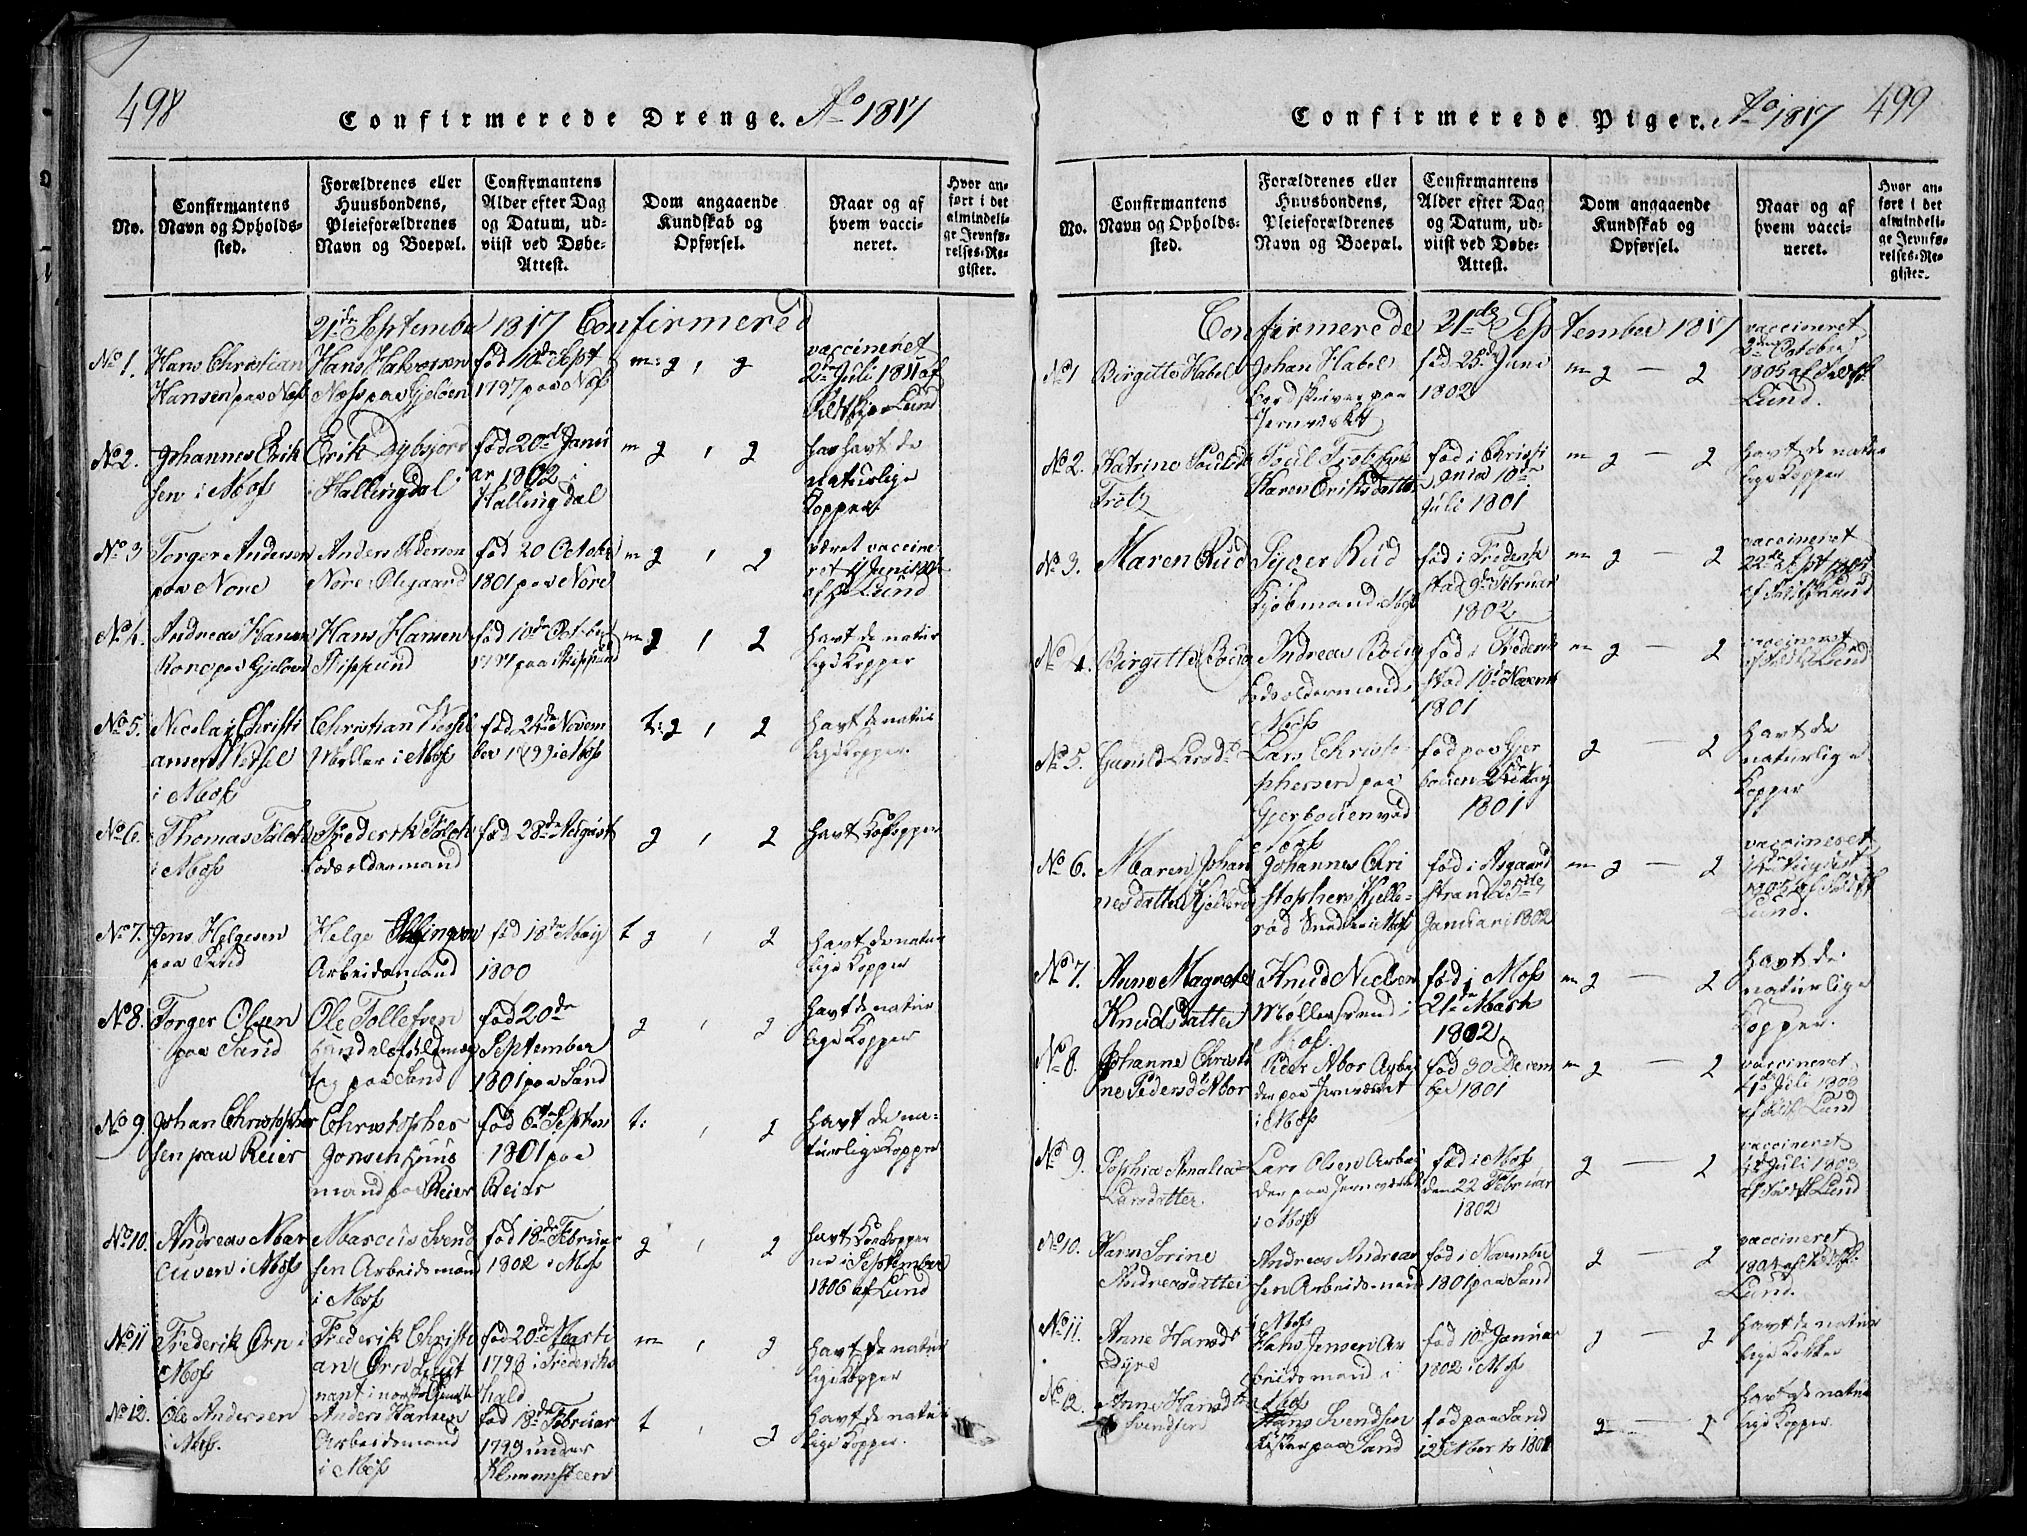 498
Confirmerede Drenge. Ao 1817
No.
Confirmantens
Navn og Opholds-
sted.
Forældrenes eller
Huusbondens,
Pleieforældrenes
Navn og Boepæl.
Confirmantens
Alder efter Dag
og Datum, ud-
viist ved Døbe-
Attest.
Dom angaaende
Kundskab og
Opførsel.
Naar og af
hvem vacci-
neret.
Hvor an-
ført i det
almindeli-
ge Jevnfø-
relses-Re-
gister.
21de September 1817 Confirmered
No 1.
Hans Christian
Hansen paa Næs
Hans Halvorsen
Næss paa Gjeløen
fød 10de Sept
1797 paa Næs
m: g , g
vaccineret
2den Juli 1811 af
Lund
No 2.
Johannes Erik
sen i Moss
Erik Dybsjord
i Hallingdal
fød 20de Janu
ar 1802 i
Hallingdal
m g , g
har havt de
naturlige
Kopper
No 3
Torger Andersen
paa Nore
Anders
Nore
fød 20 Octobr
1801 paa Nore
m g , g
været vaccine
ret
Lund
No 4.
Andreas Hansen
paa Gjeløen
Hans Hansen
Skippund
fød 10de Octobr
1797 paa Skippund
m: g , g
havt de natur
lige Kopper
No 5.
Nicolay Christi
ansen Wessel
i Moss
Christian Wessel
Møller i Moss
fød 24de Novem
ber 1799 i Moss
t: g , g
havt de natur
lige Kopper.
No 6.
Thomas Falch
i Moss
Frederik Falch
fød 28de August
g , g
havt Kokopper
No 7.
Jens Helgesen
paa Sand
Helge
Arbeidsmand
fød 18de May
1800
t g , g
havt de natur
lige Kopper
No 8.
Torger Olsen
paa Sand
Ole Tollefsen
paa Sand
fød 20de
September
1801 paa Sand
g , g
havt de natur
lige Kopper
No 9
Johan Christopher
sen paa Reier
Christopher
Jonsen Huus
mand paa Reier
fød 6te Septem
1801 paa
Reier
t: , g
havt de na-
turlige Kopper
No 10.
Andreas Mar
cusen i Moss
Marcus Svend
sen Arbeidsmand
i Moss
fød 18de Februar
1802 i Moss
g , g
havt Kokopper
ne i September
1806 af Lund
No 11
Frederik Ørn i
Moss
Frederik Christi
an Ørn Lieut
nant i
fød 20de Marts
1798 i Frederiks
hald
m , g
havt de natur
lige Kopper
No 12.
Ole Andersen
i Moss.
Anders Hansen
Arbeidsmand
i Moss
fød 18de Februar
1799 under
t , g
havt de natur
lige Kopper.
499
Confirmerede Piger. Ao 1817
No.
Confirmantens
Navn og Opholds-
sted.
Forældrenes eller
Huusbondens,
Pleieforældrenes
Navn og Boepæl.
Confirmantens
Alder efter Dag
og Datum, ud-
viist ved Døbe-
Attest.
Dom angaaende
Kundskab og
Opførsel.
Naar og af
hvem vacci-
neret.
Hvor an-
ført i det
almindeli-
ge Jevnfø-
relses-Re-
gister.
Confirmerede 21de September 1817
No 1
Birgitte Habel
Johan Habel
paa
Jernverket
fød 25de Juni
1802
m g — g
vaccineret
3die Octobr
1805 af
Lund.
No 2.
Katrine Poulsd
Poul
Karen Eriksdatter
fød i Christi
ania 10de
Juli 1801
m g — g
havt de natur
lige Kopper
No 3.
Maren Rud
Syver Rud
Kjøbmand Moss
fød i Frederik
stad 9de Februar
1802
m g — g
vaccineret
22de Sept 1805
af Lund
No 4.
Birgitte
Andreas
Moss
fød i Frederik
stad 10de Novem
1801
m g — g
vaccineret
af Lund
No 5.
Gunild Larsdt
Lars Christo-
phersen paa
fød paa
1801
g — g
havt de
naturlige
Kopper
No 6.
Maren Johan
nesdatter Kjellerød
Johannes Chri
stophers Kjelle-
rød Snedker i Moss
fød i Aasgaard
strand 25de
Januari 1802
m g — g
vaccineret
August
1805 af
Lund.
No 7.
Anne Magrete
Knudsdatter
Knud Nielsen
Møllersvend i
Moss
fød i Moss
21de Marts
1802
m g — g
havt de
naturlige
Kopper.
No 8.
Johanne Christi
ne Pedersdt Moor
Peder Moor Arbei
der paa Jernværket
i Moss
fød 30 Decem
ber 1801
m g — g
vaccineret
Juli 1803
af Lund
No 9.
Sophia Amalia
Larsdatter
Lars Olsen Arbei
der paa Jernværket
i Moss
fød i Moss
den 22 Februar
1802
g — g
vaccineret
Juli 1803
af Lund
No 10.
Karen Sorine
Andreasdatter
Andreas Andrea
sen Arbeidsmand
i Moss
fød i November
1801 paa Sand
g — g
vaccineret
1804 af
Lund.
No 11.
Anne Hansdt
Dyre
Hans Jensen Ar
beidsmand i
Moss
fød 10de Januar
1802 i Moss
g — g
havt de natur
lige Kokker
No 12.
Anne Hansdt
Svendsen
Hans Svendsen
Fisker paa Sand
fød paa Sand
12 Marts 1801
g — g
havt de natur
lige Kopper.